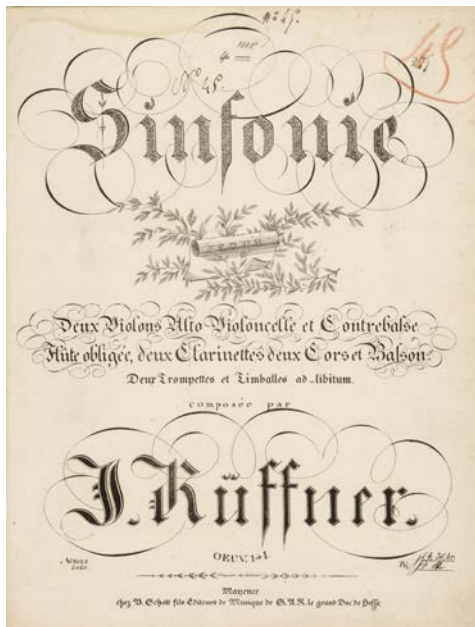 4 me
Sinfonie
POUR
Deux Violons Alto Violoncelle et Contrebasse
Flûte obligée, deux Clarinettes deux Cors et Basson
Deux Trompettes et Timballes ad-libitum.
composée par
J. Küffner.
OEUV.
Mayence
chez B. Schott fils Editeurs de Musique de S.A.R. le grand Duc de Hesse.